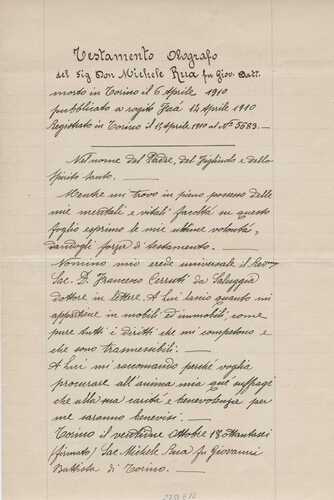 Testamento Olografo
del Sig Don Michele Rua fu Giov. Batt.
morto in Torino il 6 Aprile 1910
pubblicato a rogito 14 Aprile 1910
Registrato in Torino il Aprile 1910 al N° 5583.—
Nel nome del Padre, del Figliuolo e dello
Spirito Santo. —
Mentre mi trovo in pieno possesso delle
mie mentali e vitali facoltà su questo
foglio esprimo le mie ultime volontà,
dandogli forza di testamento. —
Nomino mio erede universale il
Sac. D. Francesco Cerruti da Saluggia
dottore in lettere. A Lui lascio quanto mi
appartiene in mobili ed immobili, come
pure tutti i diritti che mi competono e
che sono trasmessibili. —
A Lui mi raccomando perché voglia
procurare all'anima mia que' suffragi
che alla sua carità e benevolenza per
me saranno benevisi. —
Torino il ventidue Ottobre 18
(firmato) Sac Michele Rua fu Giovanni
Battista di Torino. —